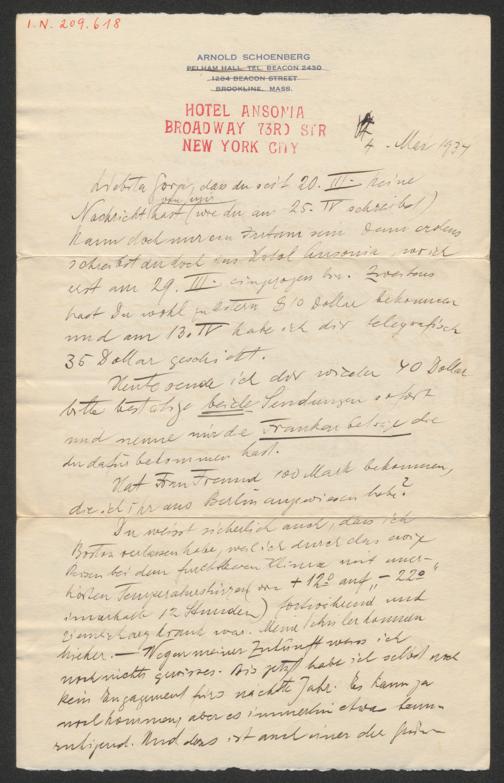 I.N. 209.618
ARNOLD SCHOENBERG
PELHAM HALL, TEL. BEACON 2430
1284 BEACON STREET
BROOKLINE, MASS.
HOTEL ANSONIA
BROADWAY 73RD STR
NEW YORK CITY
4. Mai 1934
Liebste Görgi, dass du seit 20. III. keine
von mir
Nachricht hast (wie du am 25. IV schreibst)
kann doch nur ein Irrtum sein. Denn erstens
schreibst du doch ins Hotel Ansonia, wo ich
erst am 29. III. eingezogen bin. Zweitens
hast Du wohl $10 Dollar bekommen
und am 13. IV habe ich dir telegrafisch
35 Dollar geschickt.
Heute sende ich dir wieder 40 Dollar
bitte bestätige beide Sendungen sofort
und nenne mir die Frankenbeträge die
du dafür bekommen hast.
Hat Frau Freund 100 Mark bekommen,
die ich ihr aus Berlin angewiesen habe?
Du weisst sicherlich auch, dass ich
Boston verlassen habe, weil ich durch das ewige
Reisen bei dem furchtbaren Klima mit uner-
hörten Temperaturstürzen (von +12° auf "-22°"
innerhalb 12 Stunden) fortwährend und
ziemlich krank war. Meine Schüler kommen
hieher. — Wegen meiner Zukunft weiss ich
noch nichts gewisses. Bis jetzt habe ich selbst noch
kein Engagement fürs nächste Jahr. Es kann ja
noch kommen, aber es ist immerhin etwas beun-
ruhigend. Und das ist auch einer der Grün-